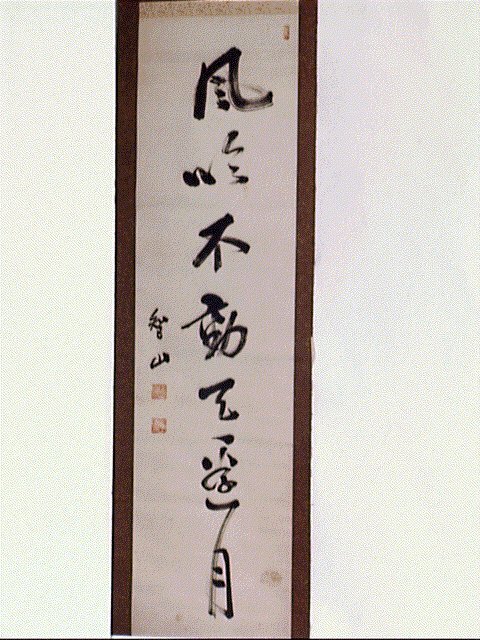 風吹不動天邊月
智山